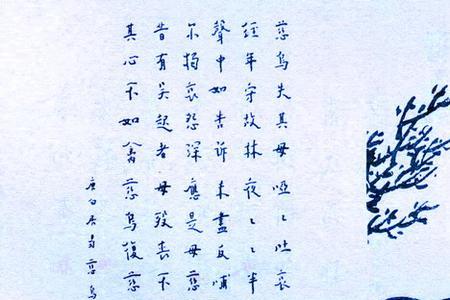 慈烏失其母啞〻吐哀
經年守故林夜〻〻半
聲中如告訴未盡反哺
尔獨哀怨深應是母慈
昔有吳起者母歿喪不
其心不如禽慈烏復慈
唐白居易慈烏